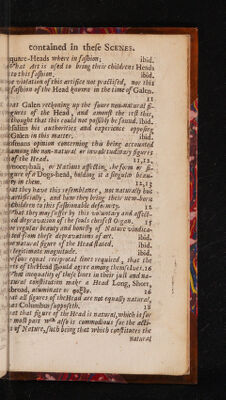 contained in theſe SCENES.
ſquare-Heads where in faſhion; ibid.
what Art is uſed to bring their childrens Heads
to this faſhion, ibid.
violation of this artifice not practiſed, nor this
faſhion of the Head known in the time of Galen.
11
that Galen reckoning up the foure non-naturall
figures of the Head, and amongſt the reſt this,
thought that this could not poſſibly be found. ibid.
his authorities and experience oppoſing
Galen in this matter. ibid.
opinion concerning this being accounted
among the non-naturall or invalidudinary figures
of the Head. 11,12.
Cynocephali, or Nations affecting the form or
figure of a Dogs-head, holding it a ſingular beauty
in them. 12,13
that they have this reſemblance, not naturally but
artificially, and how they bring their new-born
children to this faſhionable deformity. 13
What they may ſuffer by this voluntary and affected
depravation of the ſouls chiefeſt Organ. 15
The regular beauty and honeſty of Nature vindicated
from theſe depravations of art. ibid.
The naturall figure of the Head ſtated. ibid.
legitimate magnitude. ibid.
equal reciprocal lines required, that the
parts of the Head ſhould agree among themſelves. 16
What inequality of theſe lines in their juſt and naturall
conſtitution make a Head Long, Short,
broad, acuminate or 16
that all figures of the Head are not equally natural,
as Columbus ſuppoſeth. 18
that that figure of the Head is natural, which is for
the moſt part which alſo is commodious for the actions
of Nature, ſuch being that which conſtitutes the
natural